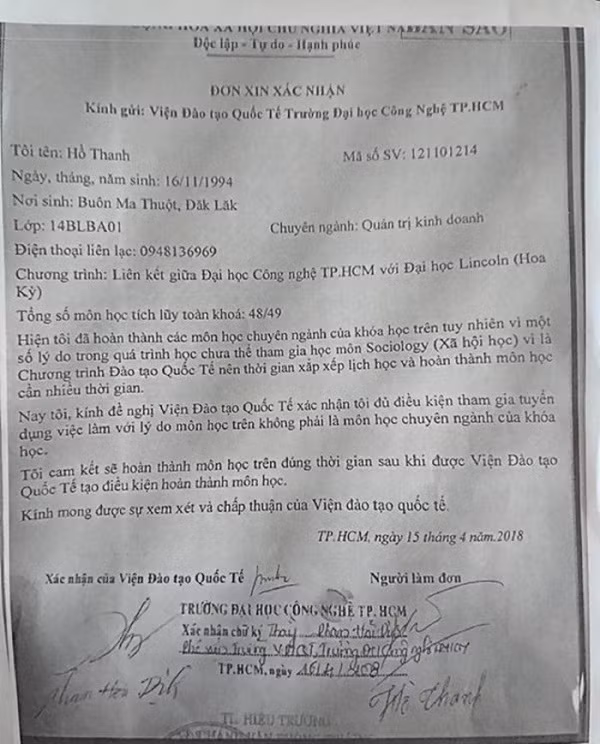 CỘNG HÒA XÃ HỘI CHỦ NGHĨA VIỆT NAM
BẢN SAO
Độc lập - Tự do - Hạnh phúc
ĐƠN XIN XÁC NHẬN
Kính gửi: Viện Đào tạo Quốc Tế Trường Đại học Công Nghệ TP.HCM
Tôi tên: Hồ Thanh Mã số SV: 121101214
Ngày, tháng, năm sinh: 16/11/1994
Nơi sinh: Buôn Ma Thuột, Dăk Lăk
Lớp: 14BLBA01 Chuyên ngành: Quản trị kinh doanh
Điện thoại liên lạc: 0948136969
Chương trình: Liên kết giữa Đại học Công nghệ TP.HCM với Đại học Lincoln (Hoa
Kỳ)
Tổng số môn học tích lũy toàn khoá: 48/49
Hiện tôi đã hoàn thành các môn học chuyên ngành của khóa học trên tuy nhiên vì một
số lý do trong quá trình học chưa thể tham gia học môn Sociology (Xã hội học) vì là
Chương trình Đào tạo Quốc Tế nên thời gian xắp xếp lịch học và hoàn thành môn học
cần nhiều thời gian.
Nay tôi, kính đề nghị Viện Đào tạo Quốc Tế xác nhận tôi đủ điều kiện tham gia tuyển
dụng việc làm với lý do môn học trên không phải là môn học chuyên ngành của khóa
học.
Tôi cam kết sẽ hoàn thành môn học trên đúng thời gian sau khi được Viện Đào tạo
Quốc Tế tạo điều kiện hoàn thành môn học.
Kính mong được sự xem xét và chấp thuận của Viện đào tạo quốc tế.
TP.HCM, ngày 15 tháng 4 năm.2018
Xác nhận của Viện Đào tạo Quốc Tế Người làm đơn
TRƯỜNG ĐẠI HỌC CÔNG NGHỆ TP. HCM
Xác nhận chữ ký Thầy
TP.HCM, ngày
Hồ Thanh
TL. HIỆU TRƯỞNG